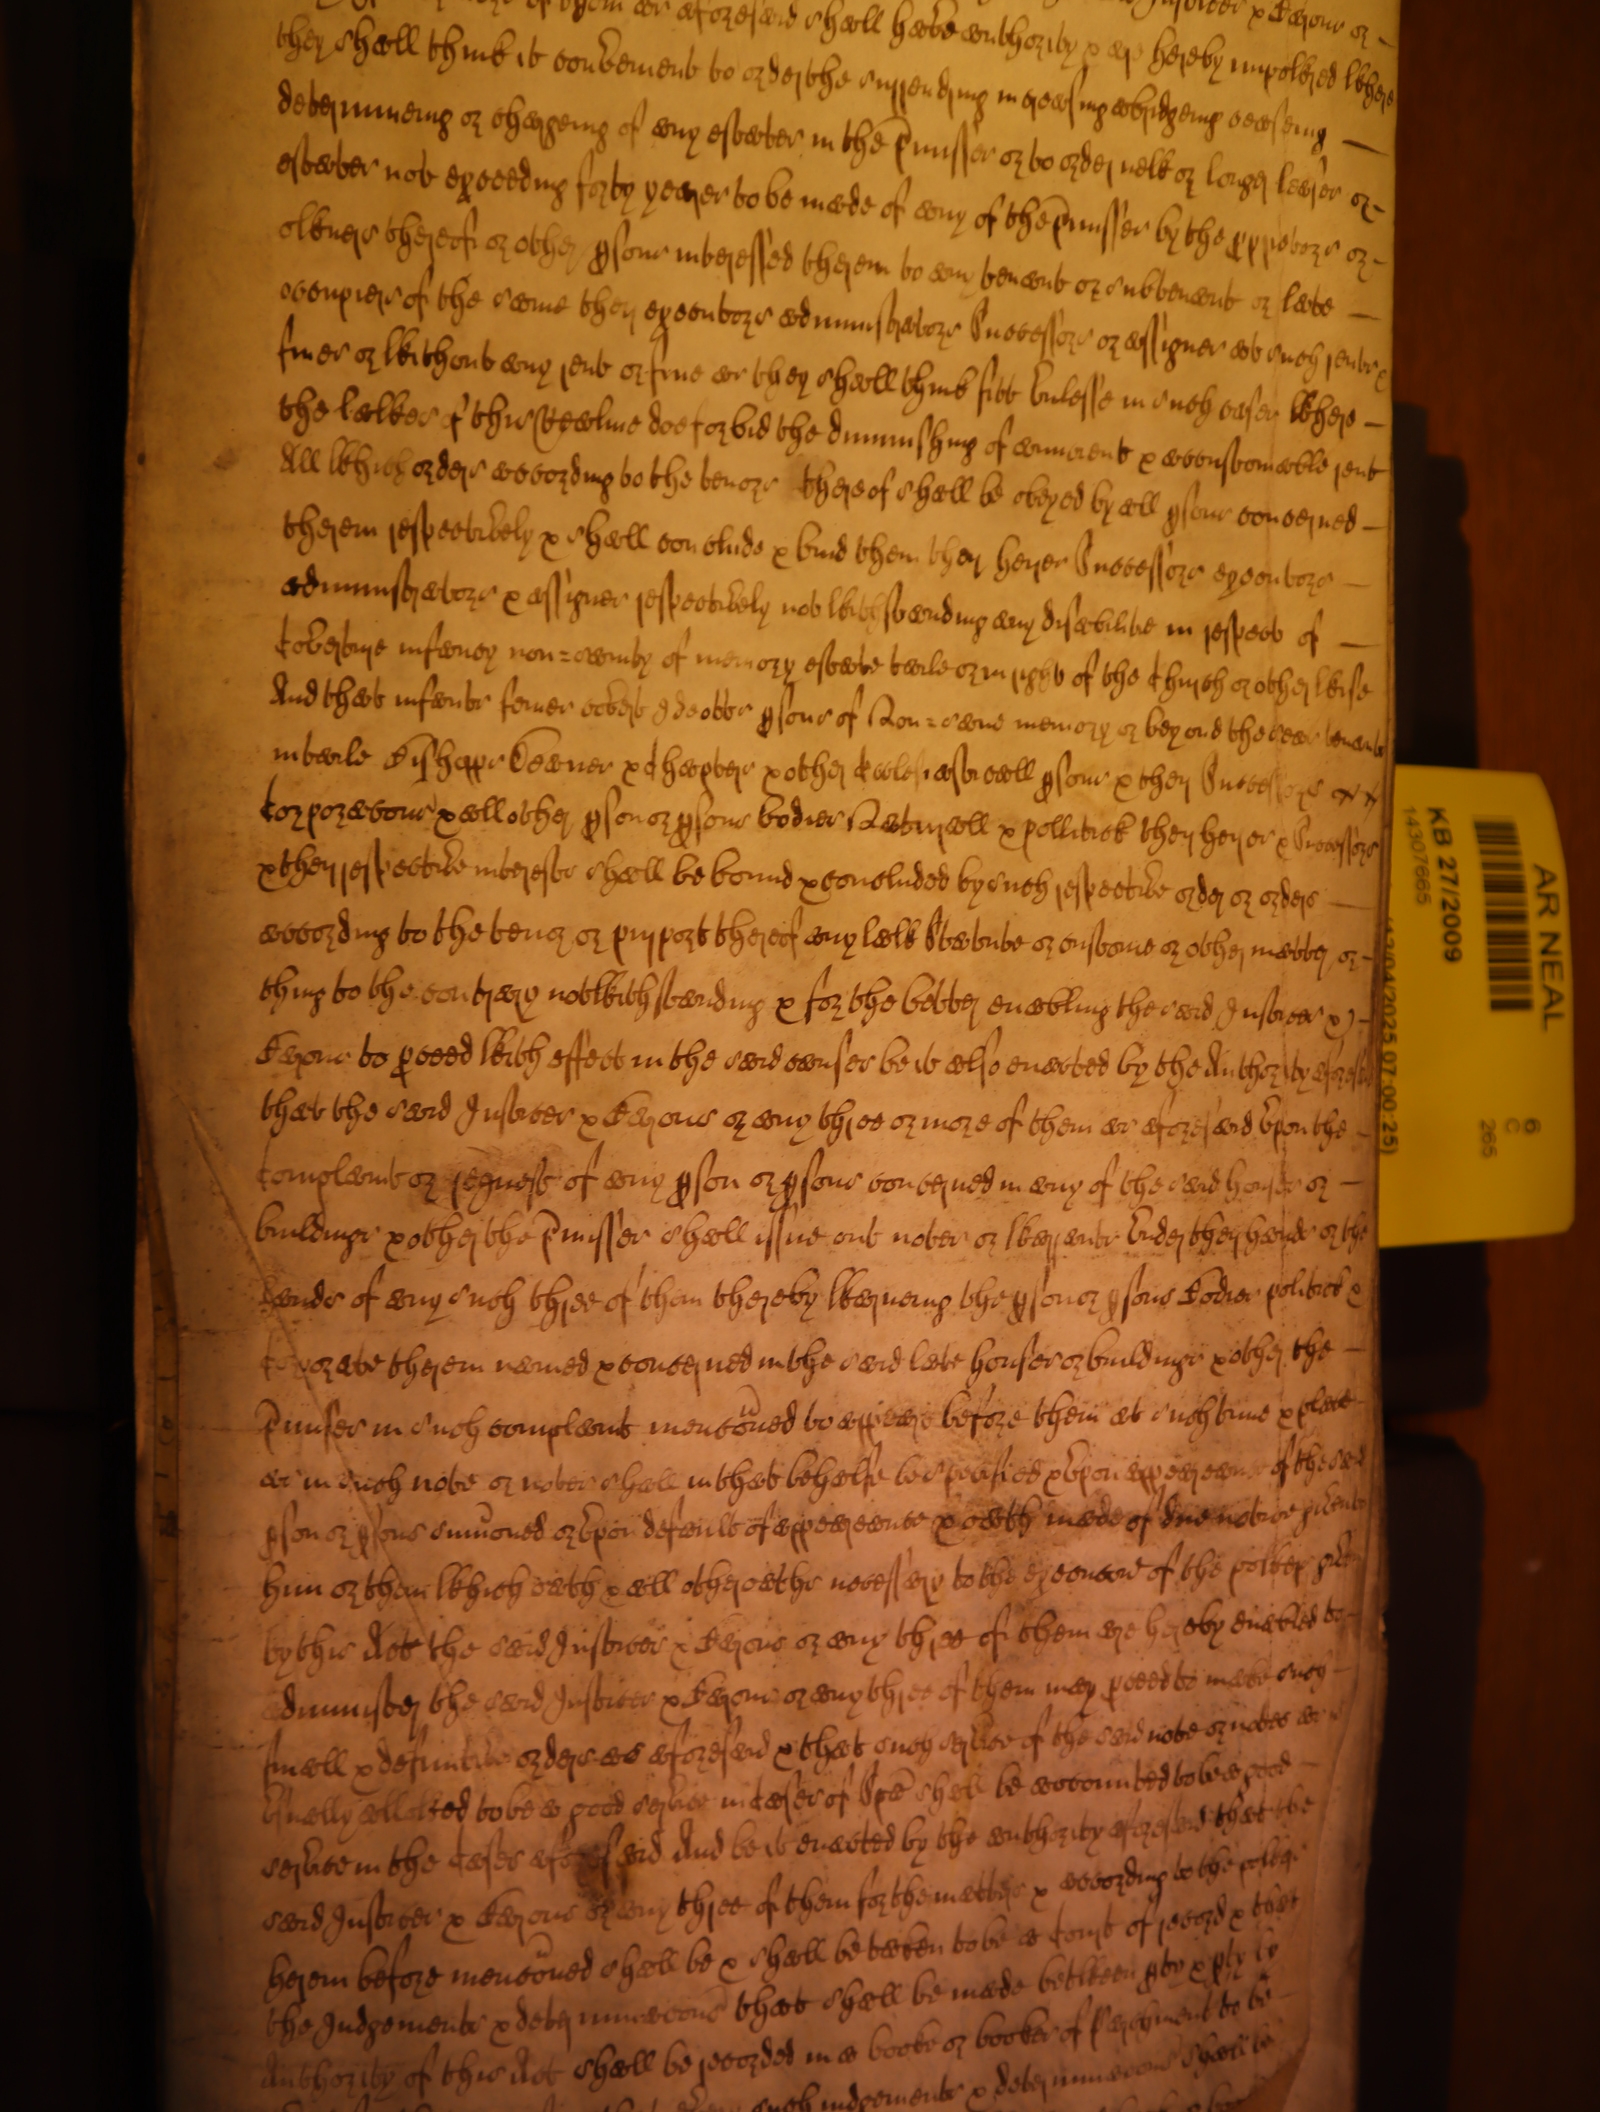 more of them as aforesaid shall have authority & are hereby impowred where
they shall think it convenient to order the surrendring increasing abridgeing ceaseing
determineing or chargeing of any estates in the p̄misses or to order new or longer leases or
estates not exceeding forty yeares to be made of any of the p̄misses by the ꝓprietors or
owners thereof or other ꝑsons interessed therein to any tenant or subtenant or late
occupiers of the same their executors administrators Successors or assignes at such rents &
fines or without any rent or fine as they shall think fitt vnlesse in such cases where
the lawes of this Realme doe forbid the diminishing of auncient & accustomable rent
All which orders according to the tenors thereof shall be obeyed by all ꝑsons concerned
therein respectively & shall conclude & bind them their heires Successors executors
administrators & assignes respectively notwithstanding any disabilitie in respect of
Coverture infancy non=sanity of memory estate taile or in right of the Church or otherwise
And that infants femes covert Ideotts ꝑsons of Non=sane memory or beyond the seas tenants
in taile Bishopps Deanes & Chapters & other Ecclesiasticall ꝑsons & their Successors
Corporacons & all other ꝑson or ꝑsons bodies Naturall & pollitick their heires & Successors
& their respective interests shall be bound & concluded by such respective order or orders
according to the tenor or purport thereof any law Statute or custome or other matter or
thing to the contrary notwithstanding & for the better enabling the said Justices &
Barons to ꝓceed with effect in the said causes be it also enacted by the Authority aforesaid
that the said Justices & Barons or any three or more of them as aforesaid vpon the
Complaint or request of any ꝑson or ꝑsons concerned in any of the said houses or
buildings & other the p̄misses shall issue out notes or warrants vnder their hands or the
hands of any such three of them thereby warneing the ꝑson or ꝑsons Bodies politick &
Corporate therein named & concerned in the said late houses or buildings & other the
p̄mises in such complaint mencōned to appeare before them at such time & place
as in such note or notes shall in that behalfe be specified & vpon appearance of the said
ꝑson or ꝑsons sum̄oned or vpon default of appearance & oath made of due notice given to
him or them which oath & all other oaths necessary to the execucon of the power given
by this Act the said Justices & Barons or any three of them are hereby enabled to
administer the said Justices & Barons or any three of them may ꝓceed to make such
finall & definitive orders as aforesaid & that such service of the said note or notes as is
vsually allowed to be a good service in Cases of Spā shall be accounted to be a good
service in the Cases aforesaid And be it enacted by the authority aforesaid that the
said Justices & Barons or any three of them for the matters & according to the power
herein before mencōned shall be & shall be taken to be a Court of record & that
the Judgements & determinacons that shall be made betweene ꝑty & ꝑty by
Authority of this Act shall be recorded in a booke or bookes of Parchment to be
such judgements & determinacons shall be
AR NEAL
KB 27/2009
14307665
6
C
265
04/2025 07:00:25)